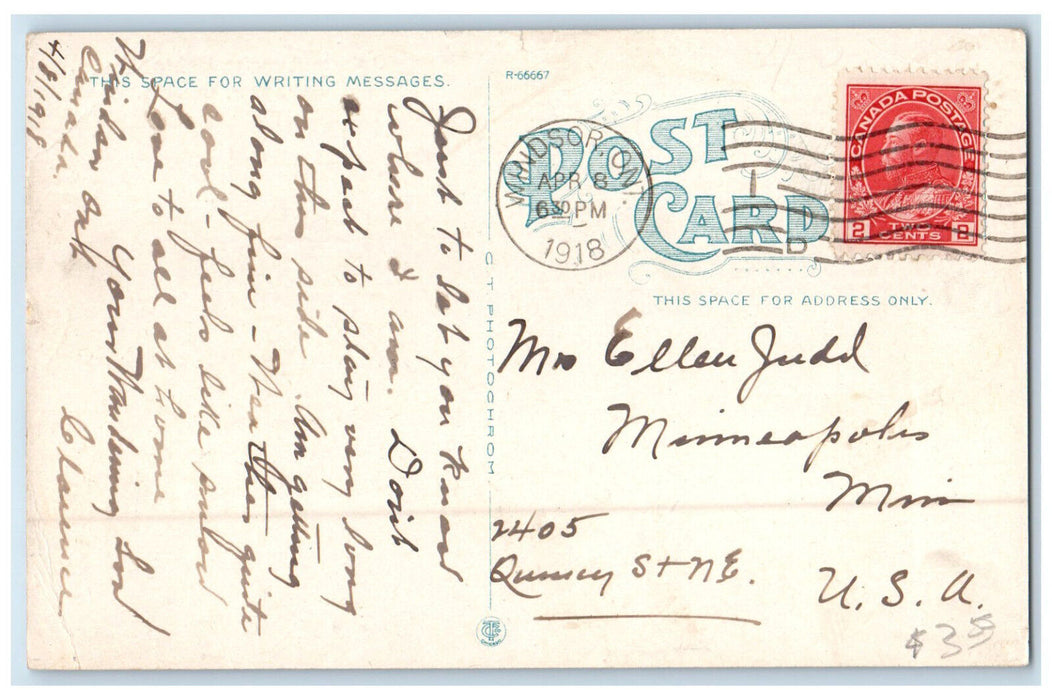 THIS SPACE FOR WRITING MESSAGES.
R-66667
POST
CARD
WINDSOR ONT.
APR 8
6 30 PM
1918
CANADA POSTAGE
2 TWO CENTS 2
THIS SPACE FOR ADDRESS ONLY.
C T PHOTOCHROM
Windsor Ont
Canada.
4/8/1918
Just to let you know
where I am. Don't
expect to stay very long
on this side. Am getting
along fine - Weather quite
cool - feels like
Love to all at home
Your Wandering Son
Clarence
Mrs Ellen Judd
Minneapolis
Minn
2405
Quincy St N.E.
U.S.A.
$3.55